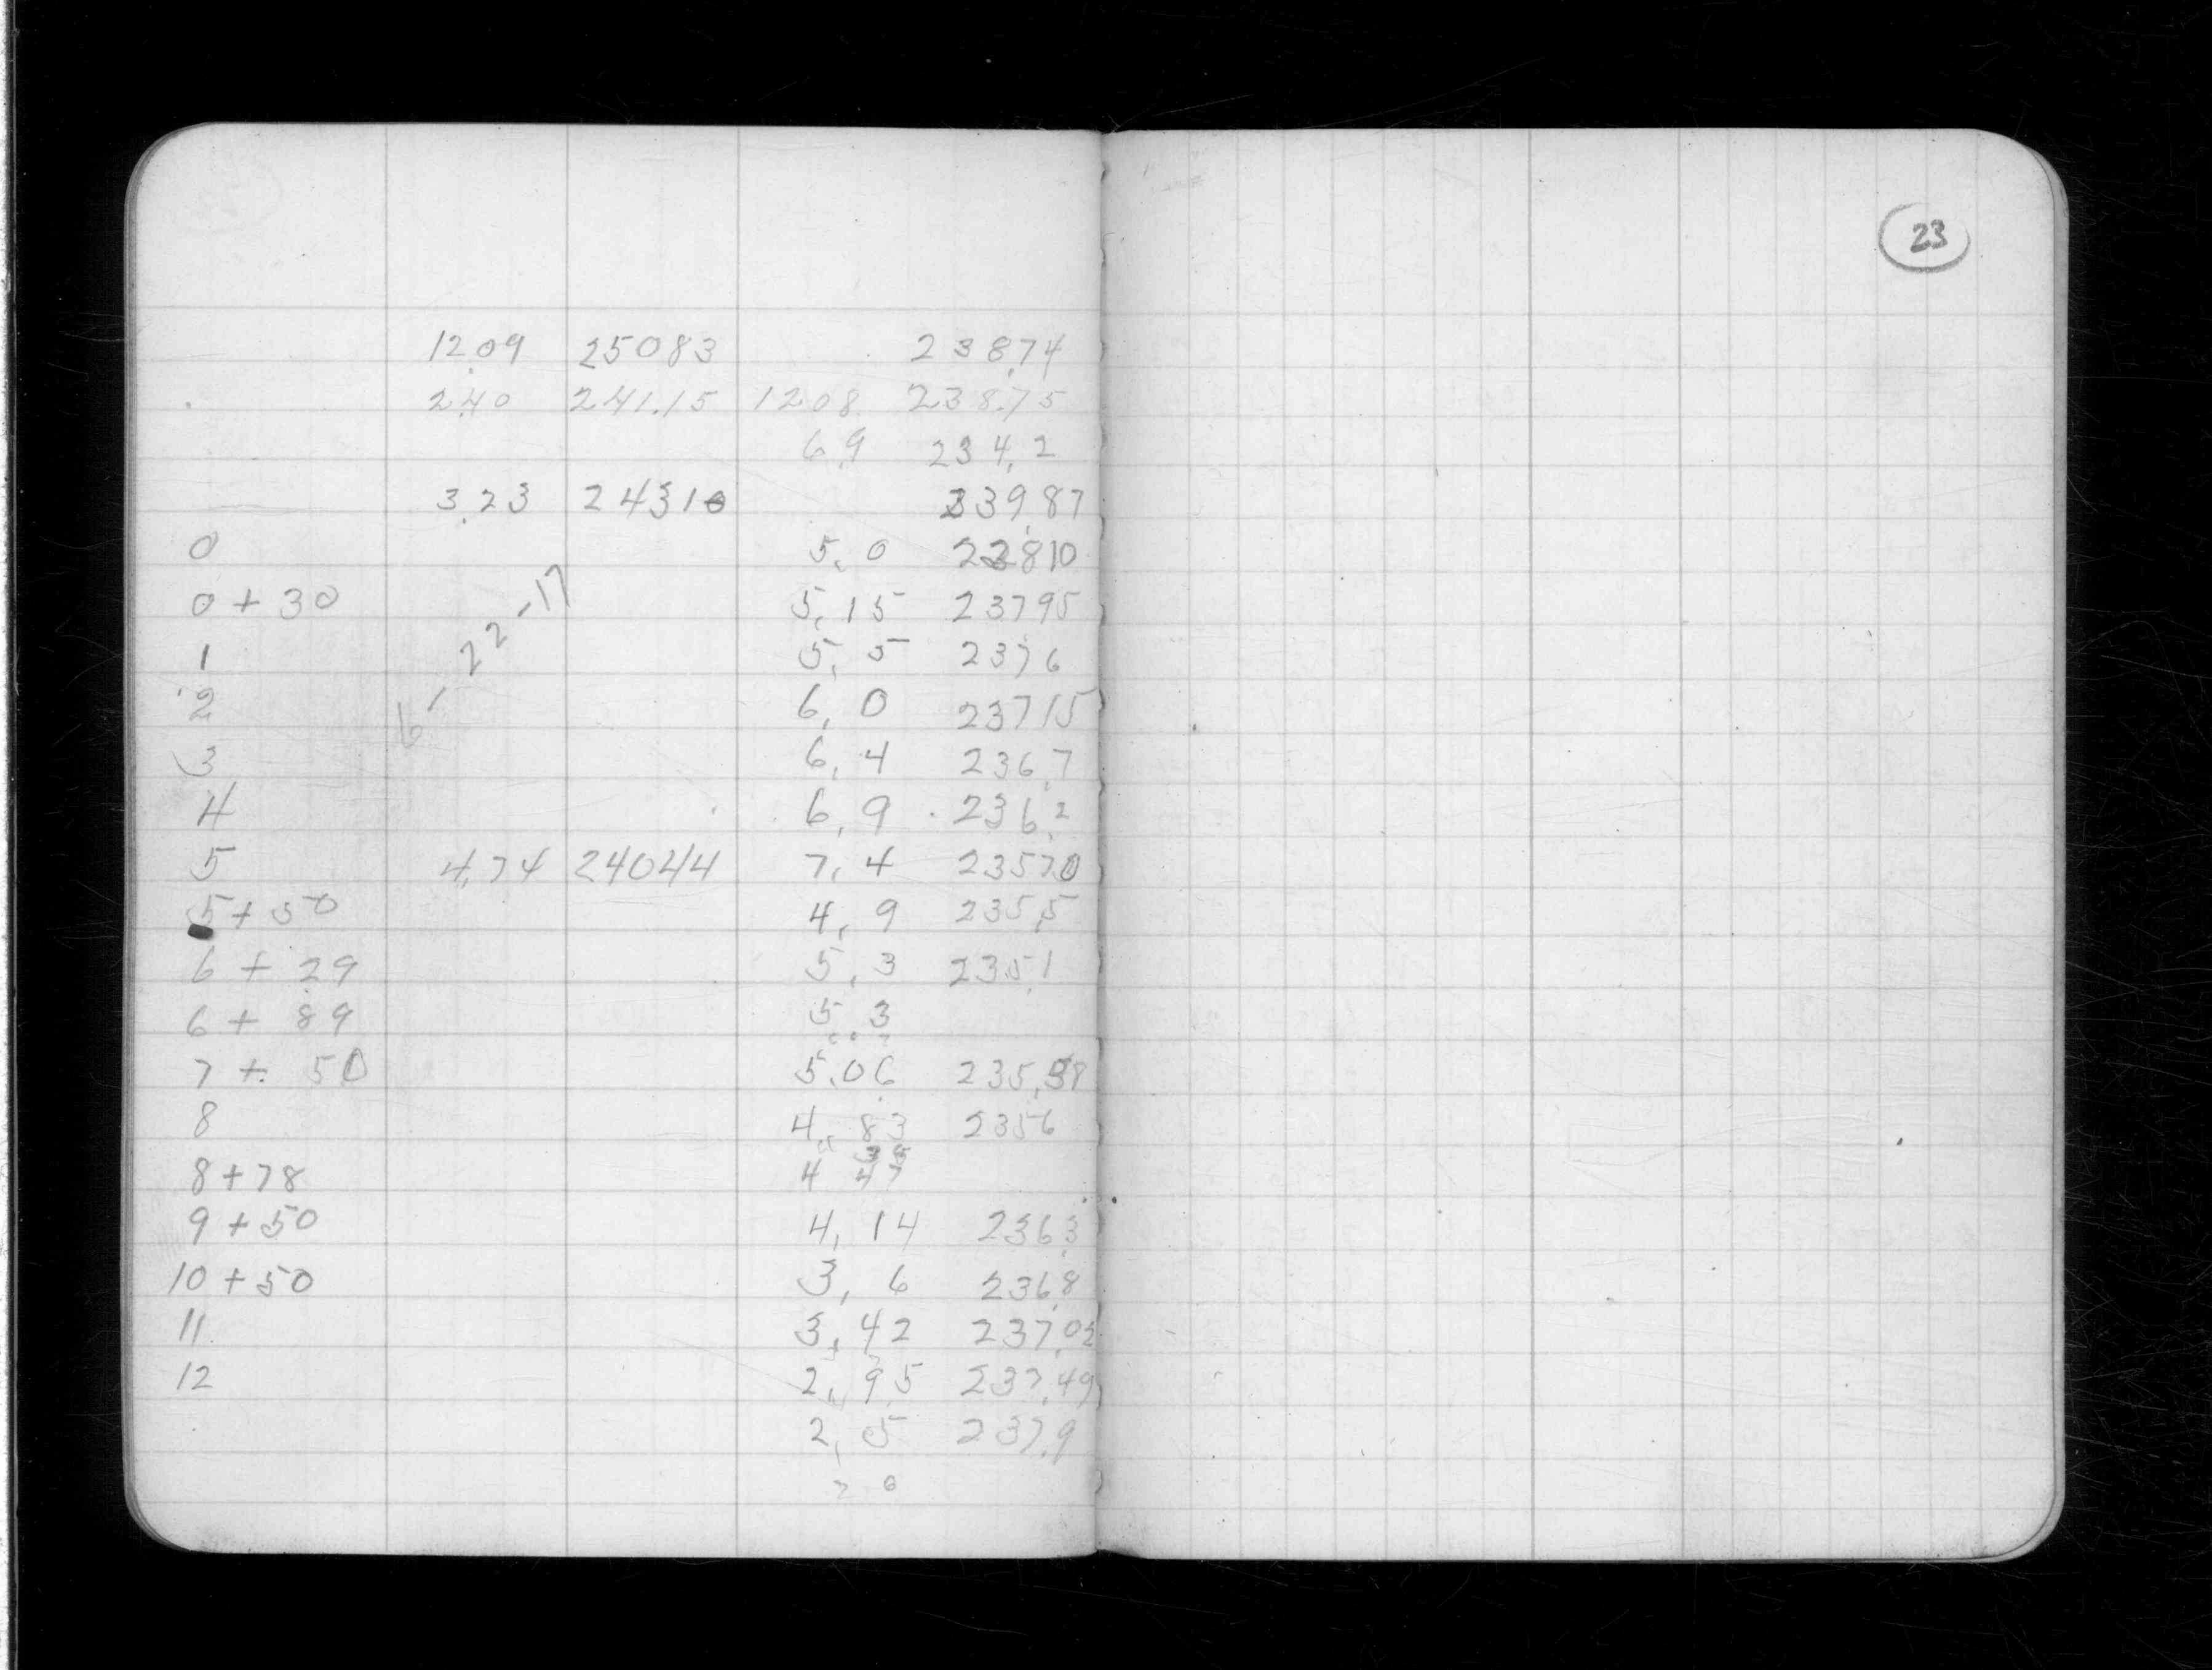 23
12.09 25083 238.74
2.40 241.15 12.08 238.75
6.9 234.2
3.23 24310 239.87
0 5.0 23810
0 + 30 5.15 23795
1 5.5 2376
2 6.0 23715
3 6.4 236.7
4 6.9 236.2
5 4.74 24044 7.4 23570
5 + 50 4.9 235.5
6 + 29 5.3 235.1
6 + 89 5.3
7 + 50 5.06 235.38
8 4.83 2356
8 + 78 4
9 + 50 4.14 236.3
10 + 50 3.6 236.8
11 3.42 237.02
12 2.95 237.49
2.5 237.9
6-22-17